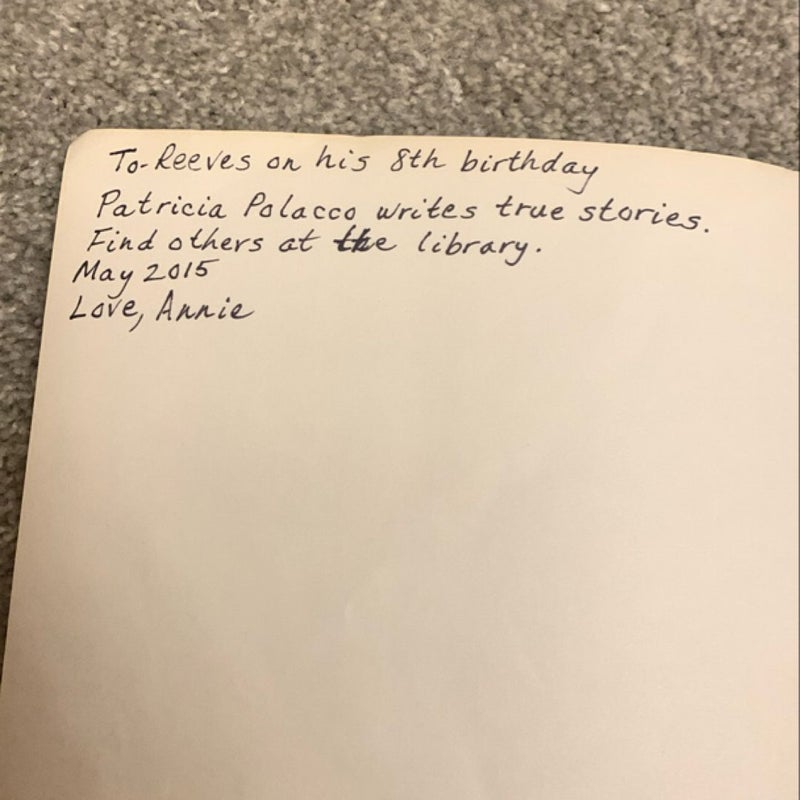 To- Reeves on his 8th birthday
Patricia Polacco writes true stories.
Find others at the library.
May 2015
Love, Annie